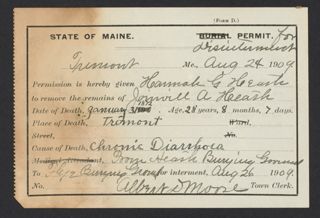 (FORM D.)
STATE OF MAINE. BURIAL PERMIT. for
disinterment
Tremont Me., Aug 24 1909
Permission is hereby given Hannah G Heath
to remove the remains of A Heath
Date of Death, January Age, 28 years, 8 months, 7 days.
Place of Death, Tremont Ward,
Street, No.
Cause of Death, Chronic Diarrhoea
Medical Attendant, From Heath Burying Ground
To Burying Ground for interment, Aug 26 1909.
No. Albert Moore Town Clerk.